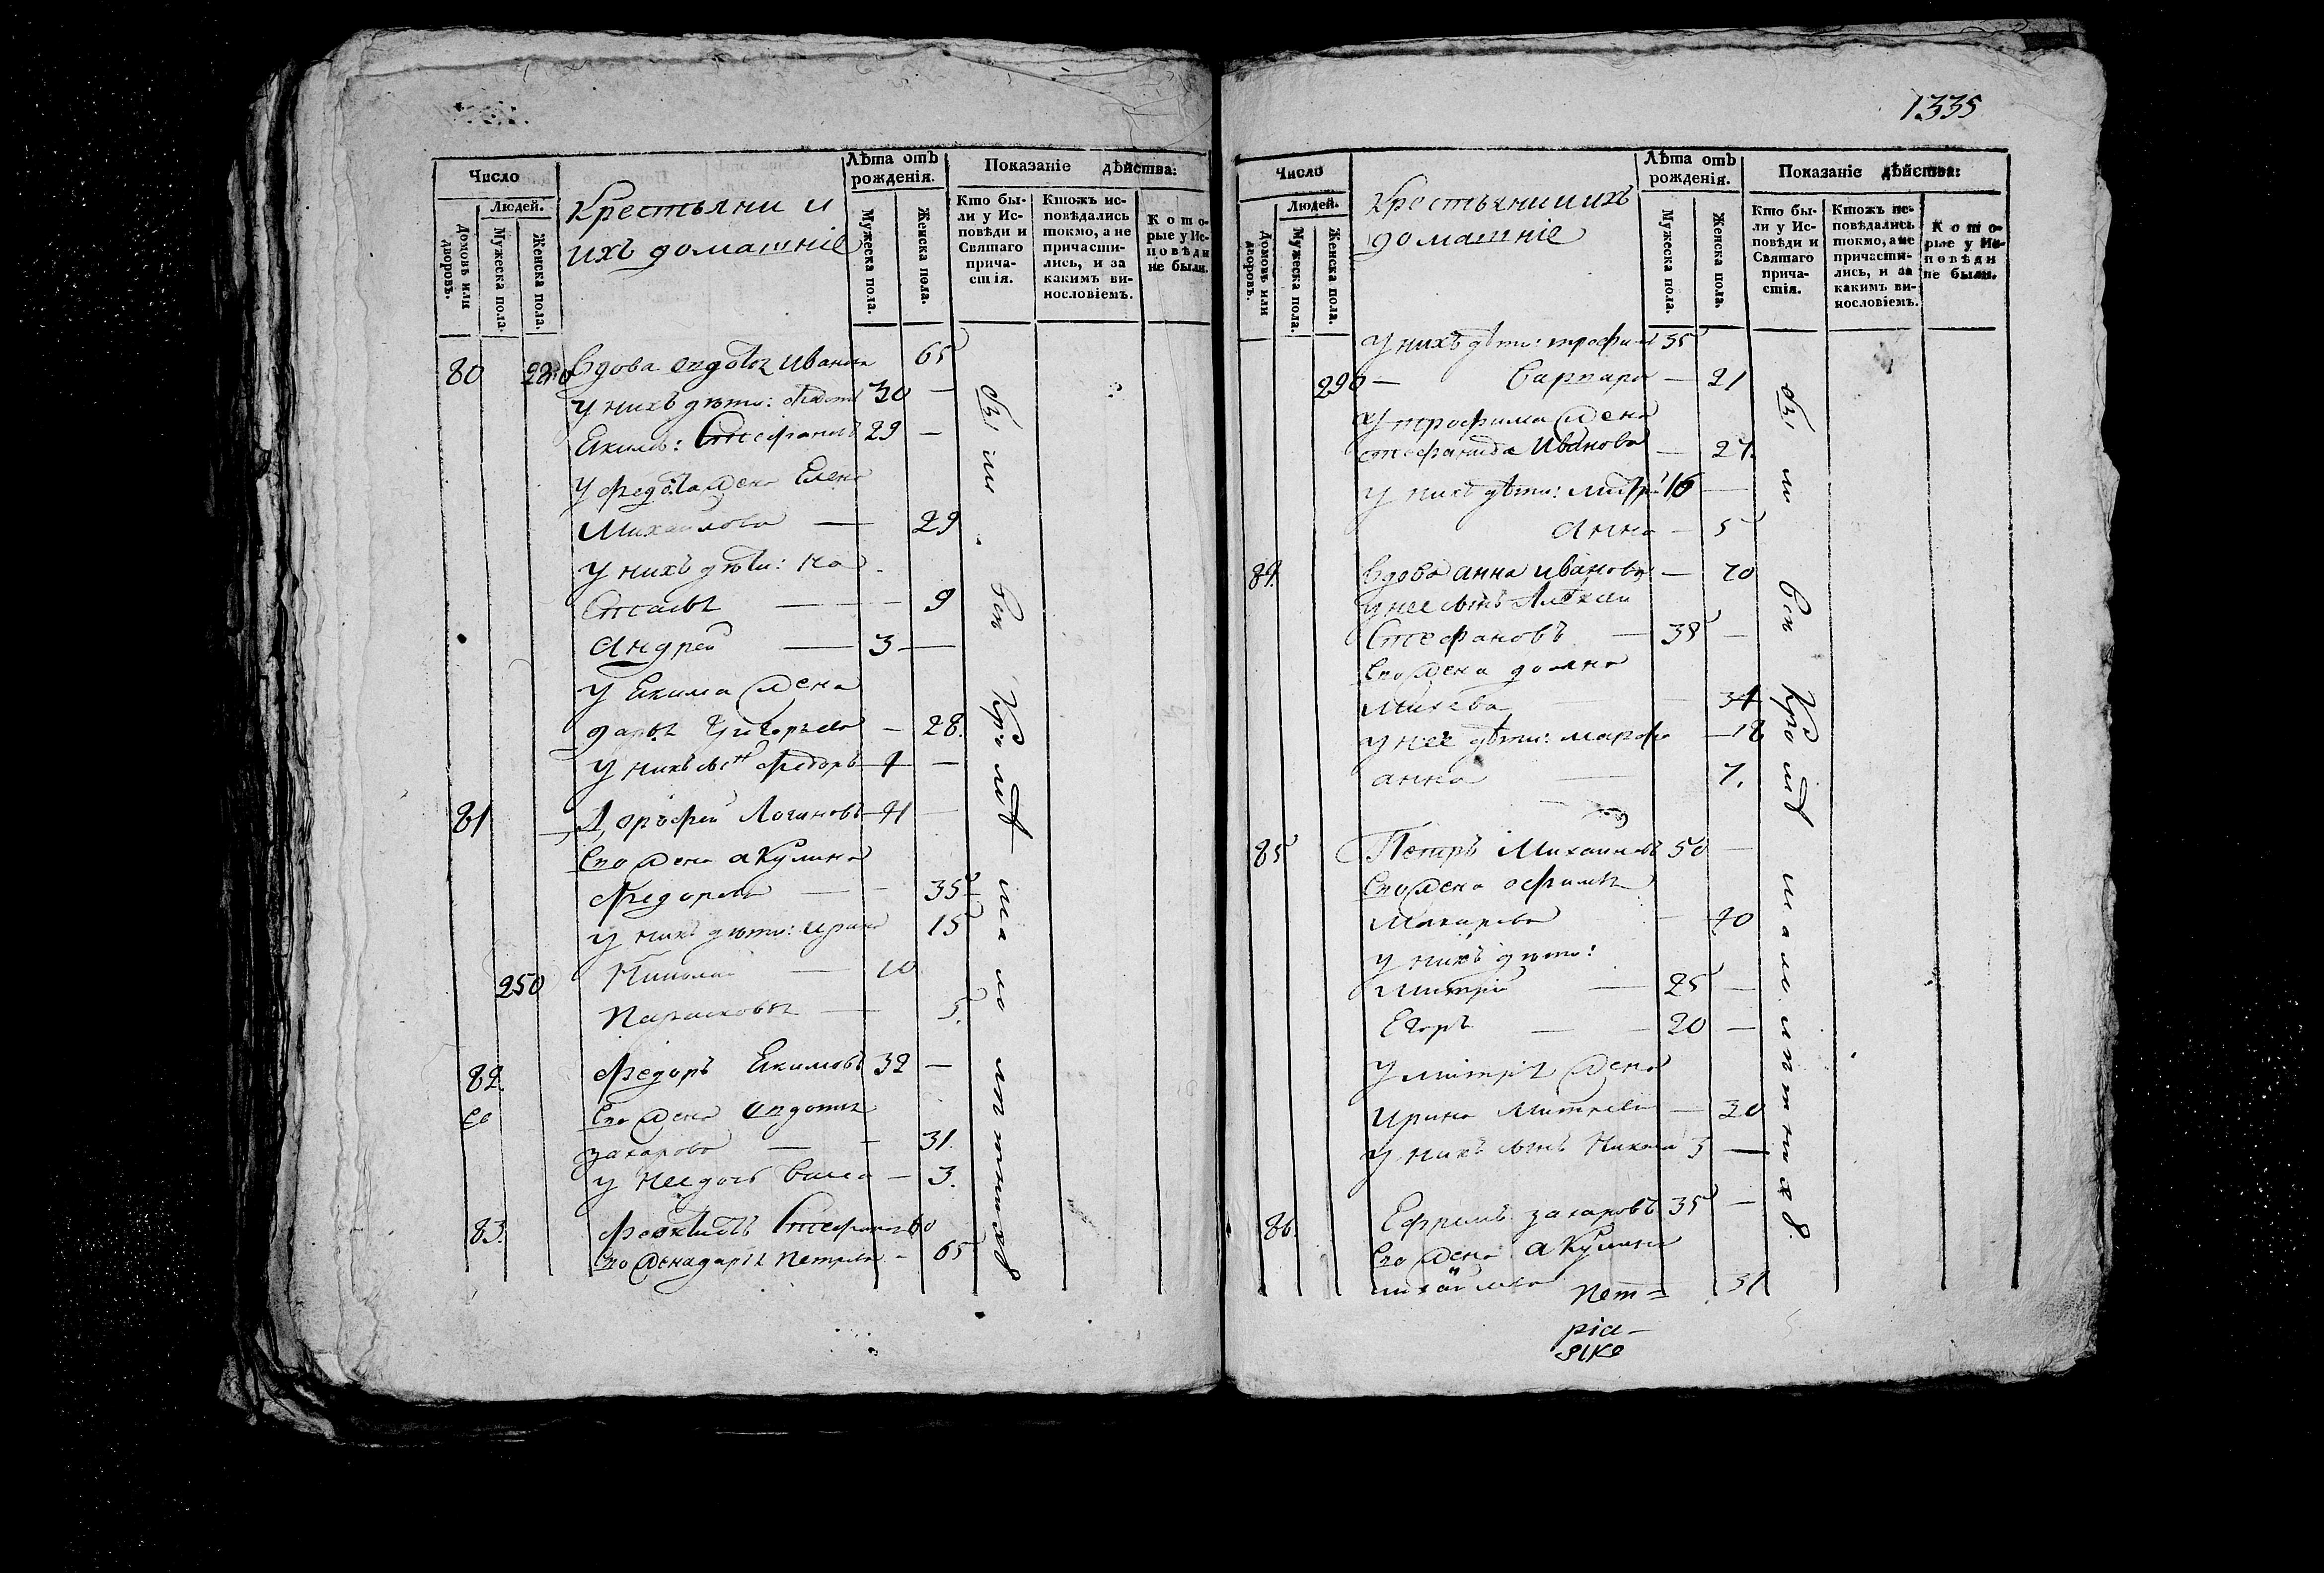 Число
Людей.
Домовъ или дворовъ.
Мужеска пола.
Женска пола.
Крестьяни и
ихъ домашніе
Лѣта отъ
рожденія.
Мужеска пола.
Женска пола.
Показаніе дѣйства:
Кто бы-
ли у Ис-
повѣди и
Святаго
прича-
стія.
Ктожъ ис-
повѣдались
токмо, а не
причасти-
лись, и за
какимъ ви-
нословіемъ.
Кото-
рые у Ис-
повѣди
не были.
80 Вдова Иванова 65
у нихъ дѣти: 30 —
Екимъ: Стефановъ 29 —
у Федота жена Елена
Михайлова — 29
у нихъ дѣти: На
стасья — 9
Андрей — 3 —
у Екима жена
Дарья Григорьева — 28.
у нихъ сынъ Федоръ 4 —
81 Дорофей Логиновъ 41 —
его жена Акулина
Федорова — 35
у нихъ дѣти: Ирина 15
250 Николай — 10
Парасковья — 5.
82. Федоръ Екимовъ 32 —
его жена Авдотья
Захарова — 31.
у нее дочь — 3.
83. Феоктистъ Стефановъ 60
его жена Дарья Петрова — 65
были
вси
кромѣ
малолѣтныхъ
1335
Число
Людей.
Домовъ или дворовъ.
Мужеска пола.
Женска пола.
Крестьяни и ихъ
домашніе
Лѣта отъ
рожденія.
Мужеска пола.
Женска пола.
Показаніе дѣйства:
Кто бы-
ли у Ис-
повѣди и
Святаго
прича-
стія.
Ктожъ ис-
повѣдались
токмо, а не
причасти-
лись, и за
какимъ ви-
нословіемъ.
Кото-
рые у Ис-
повѣди
не были.
у нихъ дѣти: Трофимъ 35
290 — Варвара — 21
у Трофима жена
Стефанида Иванова — 27.
у нихъ дѣти: —
Анна — 5
84. Вдова Анна Иванова — 70
у нее сынъ Алексеи
Стефановъ — 38 —
его жена Домна
Михеева — 34
у нее дѣти: Марфа —
Анна — 7.
85 Петръ Михаиловъ 50 —
его жена Офимья
Макарова — 40
у нихъ дѣти:
Митрій — 25 —
Егоръ — 20 —
у Митрія жена
Ирина — 20
у нихъ сынъ Никола 3 —
86. Ефремъ Захаровъ 35 —
его жена Акулина
Михайлова 31
были
вси
кромѣ
малолѣтныхъ
Пет=
ріа-